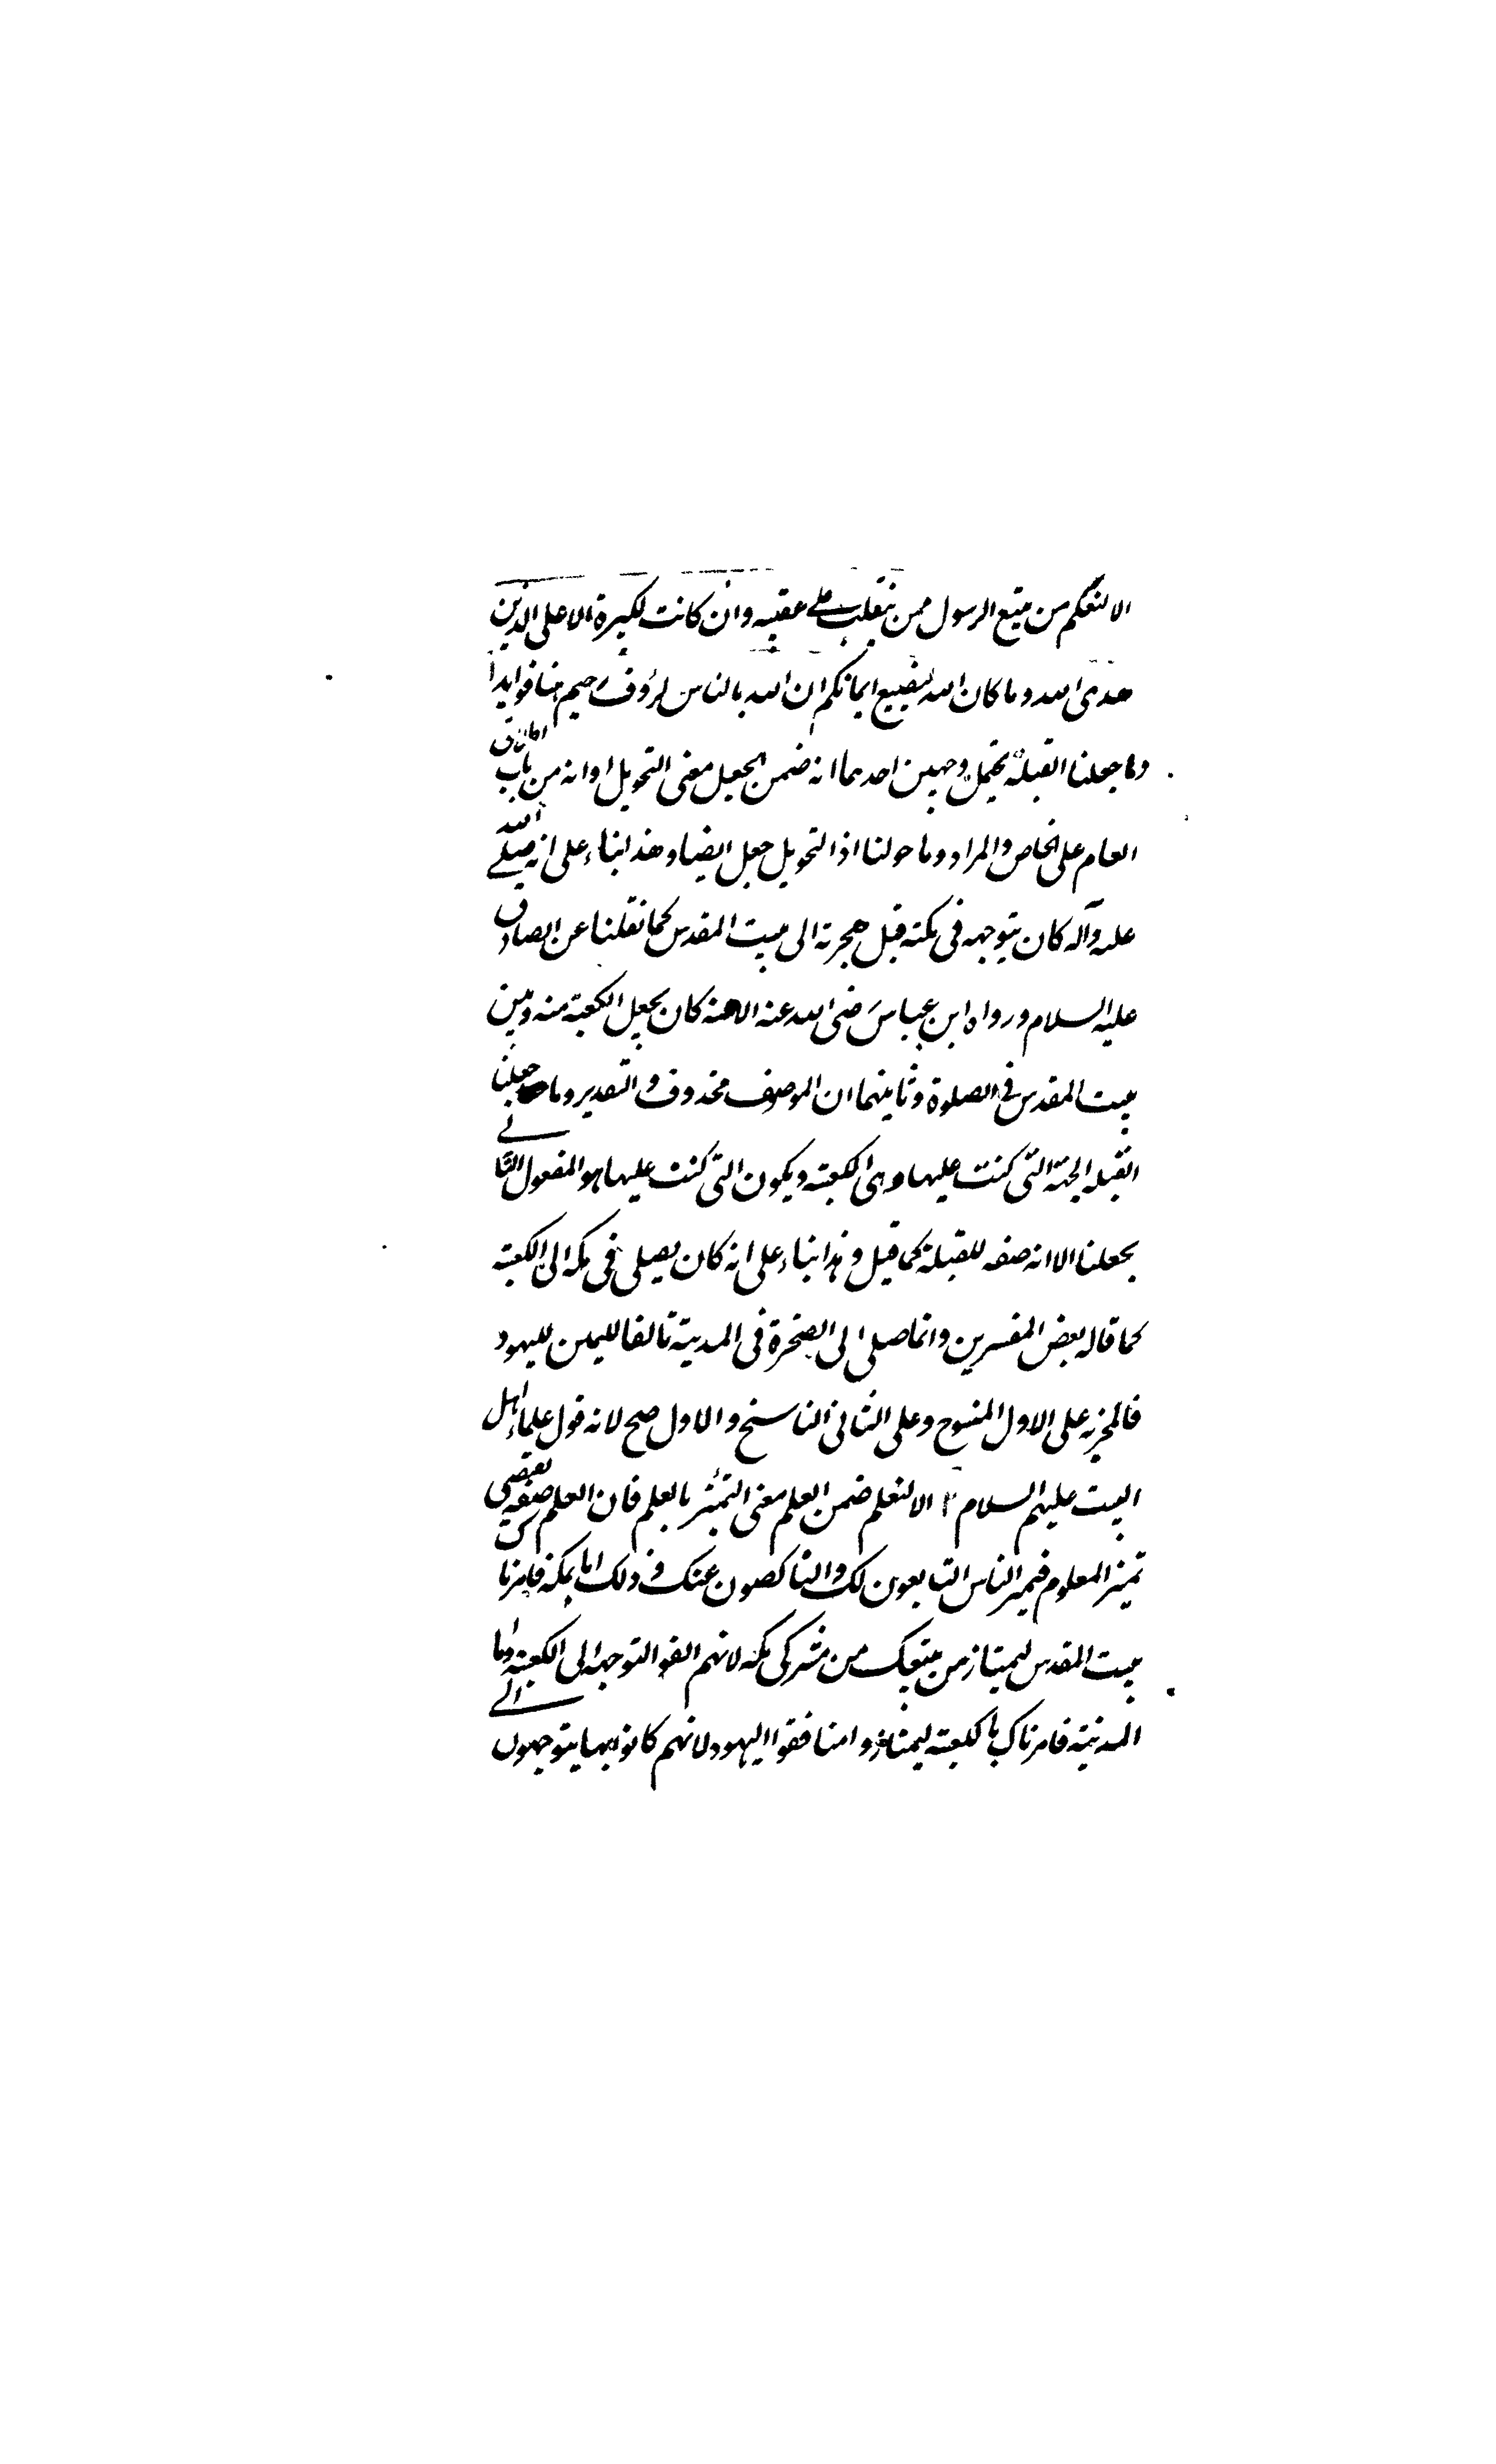 الا لنعلم من يتبع الرسول ممن ينقلب على عقبيه وان كانت لكبيرة الا على الذين
هدى الله وما كان الله ليضيع ايمانكم ان الله بالناس لرؤف رحيم هنا فوايد ا
وما جعلنا القبلة يحتمل وجهين احدهما انه ضمن الجعل معنى التحويل او انه من باب اطلاق
العام على الخاص والمراد وما حولنا اذ التحويل جعل ايضا وهذا بناء على انه صلى الله
عليه وآله كان يتوجه في مكة قبل هجرته الى بيت المقدس كما نقلنا عن الصادق
عليه السلام ورواه ابن عباس رضى الله عنه الا انه كان يجعل الكعبة بينه وبين
بيت المقدس في الصلوة وثانيهما ان الموصوف محذوف والتقدير وما جعلنا
القبلة الجهة التي كنت عليها وهى الكعبة ويكون التي كنت عليها هو المفعول الثاني
بجعلنا لا انه صفه للقبلة كما قيل وهذا بناء على انه كان يصلى في مكه الى الكعبة
كما قاله بعض المفسرين وانما صلى الى الصخرة في المدينة تالفا لليهود
فالمخبر به على الاول المنسوخ وعلى الثاني الناسخ والاول صح لانه قول علماء اهل
البيت عليهم السلام ٢ الا لنعلم ضمن العلم معنى التميز بالعلم فان العلم صفة يقتضى
تميز المعلوم فيميز الناس التابعون لك والناكصون عنك وذلك اما بمكة فامرنا
بيت المقدس ليمتاز من يتبعك من مشركى مكه لانهم الفوا التوجه الى الكعبة واما
المدينة فامرناك بالكعبة ليمتازوا منافقوا اليهود لانهم كانوا بها يتوجهون الى